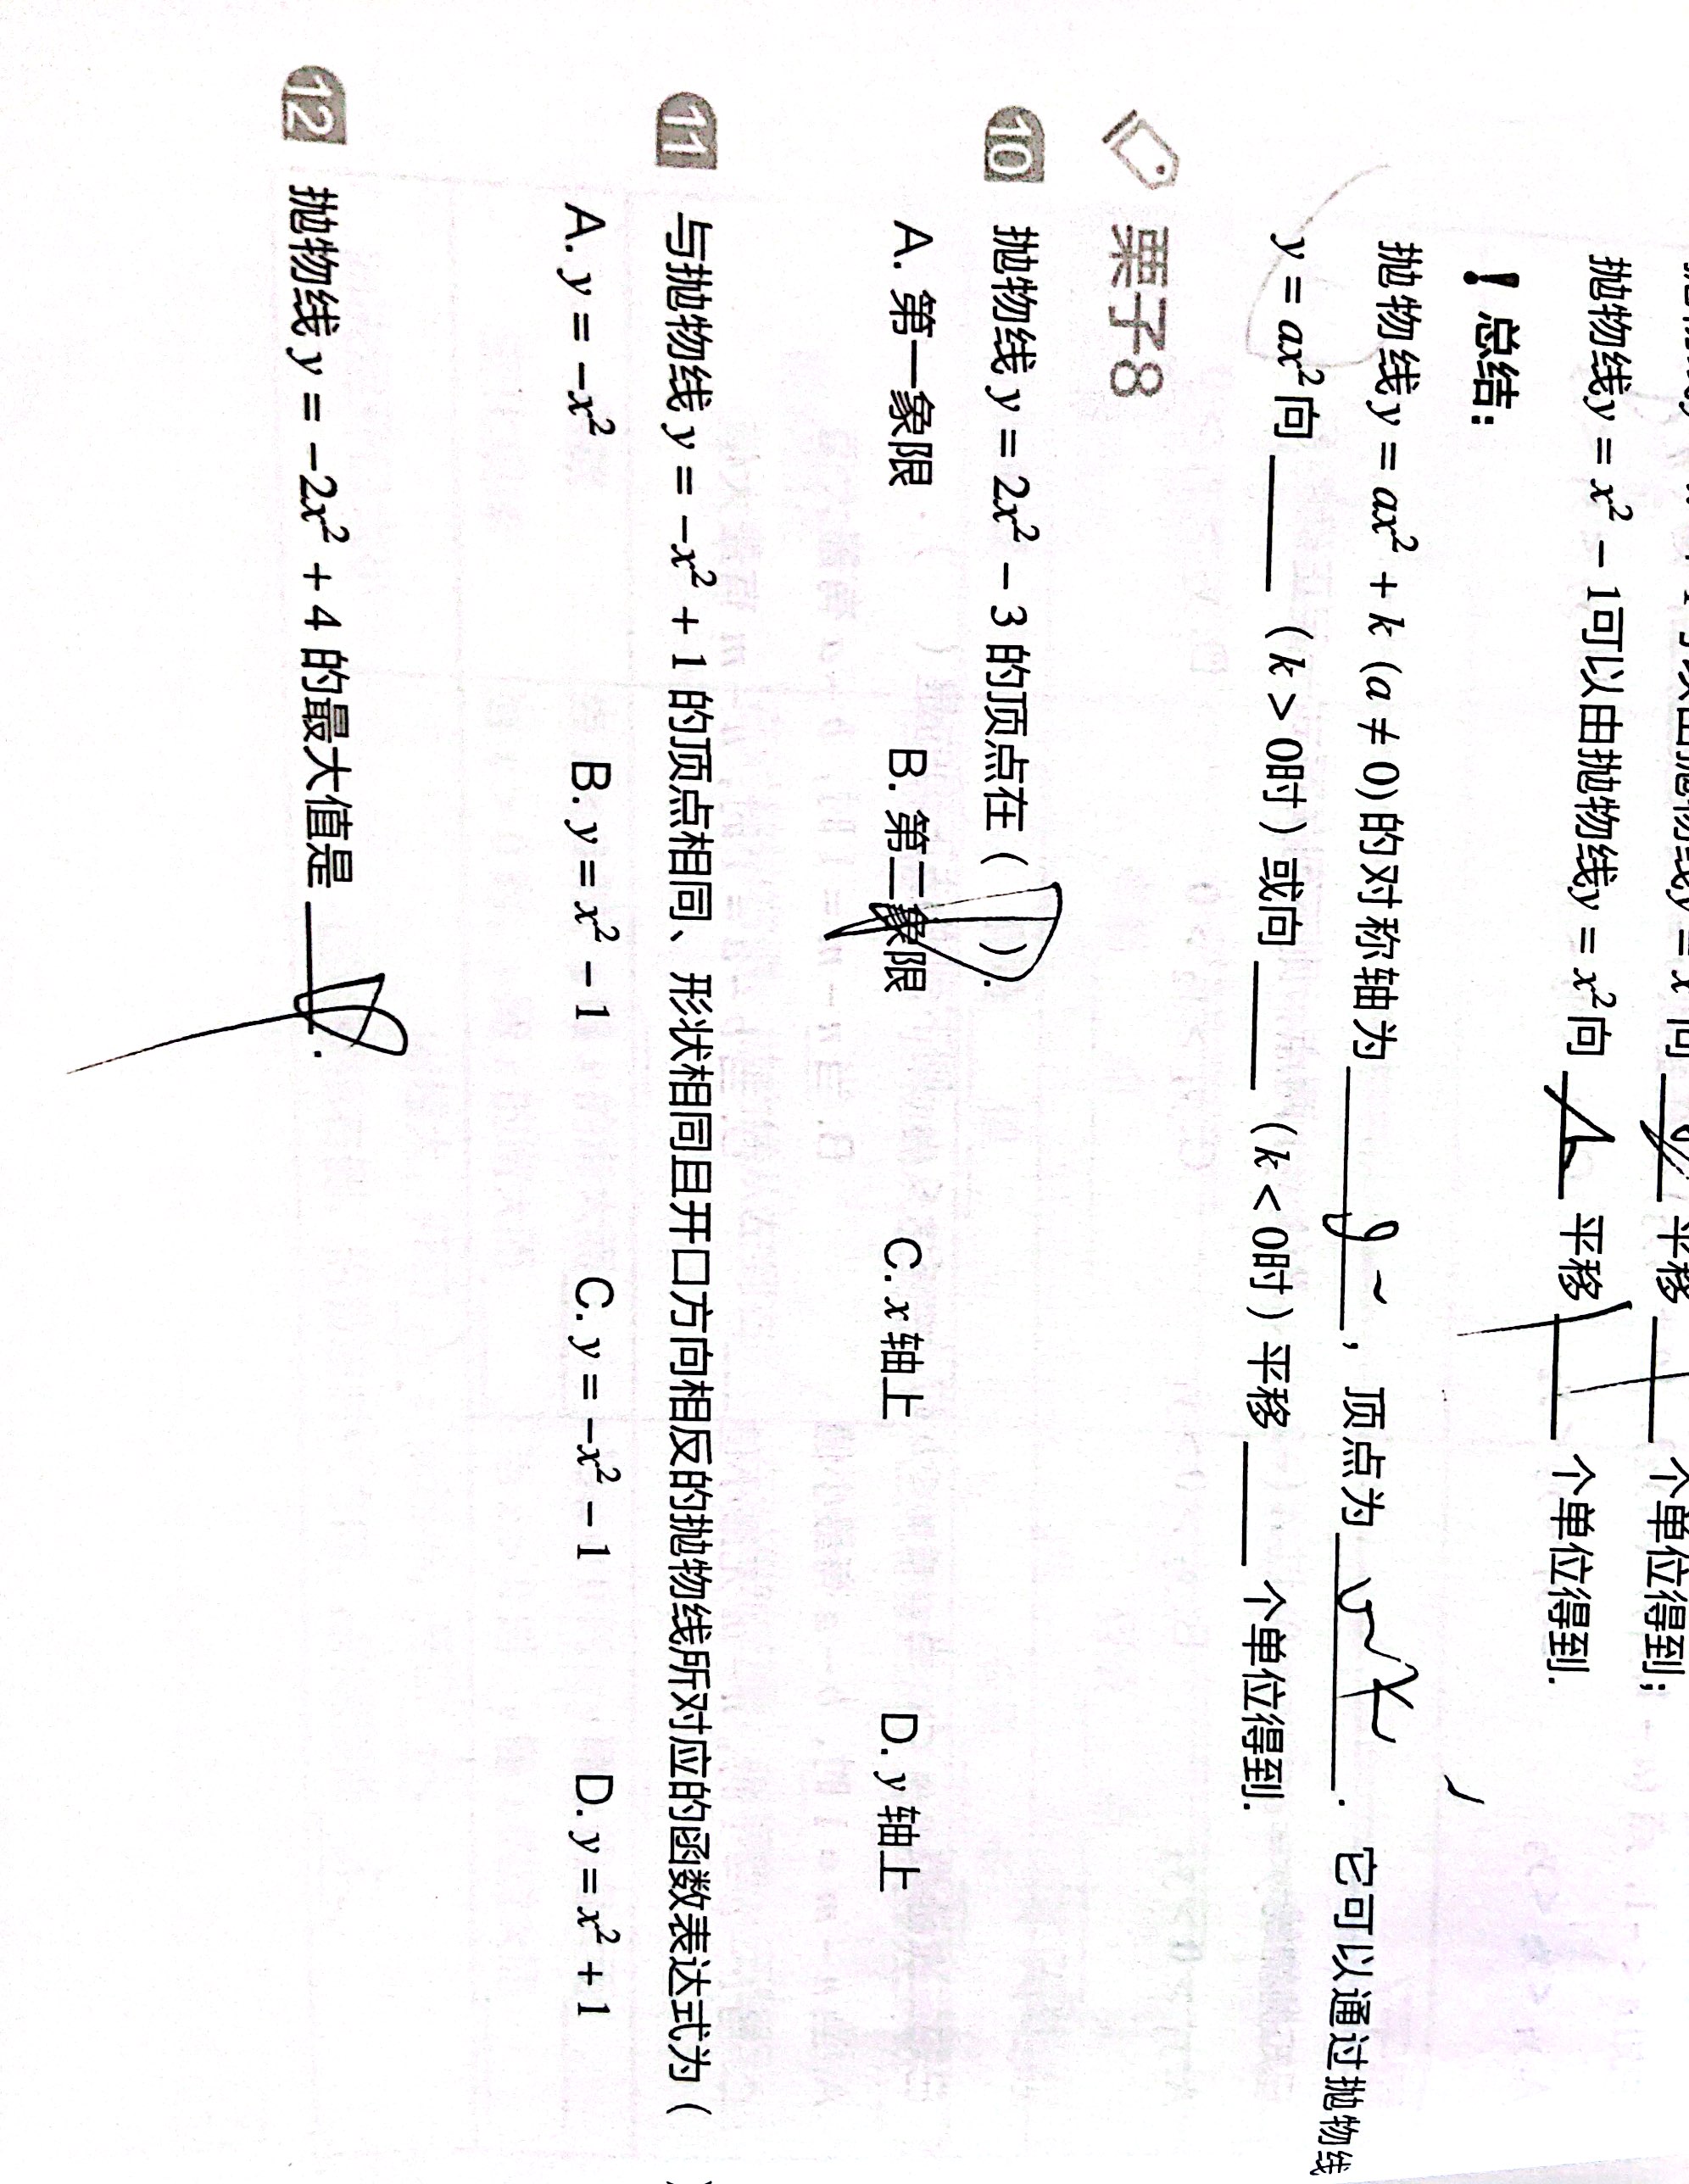 抛物线y = x² - 1可以由抛物线y = x²向 ____ 平移 ____ 个单位得到.
! 总结:
抛物线y = ax² + k (a ≠ 0)的对称轴为 ____ , 顶点为 ____ . 它可以通过抛物线
y = ax²向 ____ (k > 0时) 或向 ____ (k < 0时) 平移 ____ 个单位得到.
栗子8
10 抛物线 y = 2x² - 3 的顶点在 ( ).
A. 第一象限 B. 第二象限 C. x 轴上 D. y 轴上
11 与抛物线 y = -x² + 1 的顶点相同、形状相同且开口方向相反的抛物线所对应的函数表达式为 ( )
A. y = -x² B. y = x² - 1 C. y = -x² - 1 D. y = x² + 1
12 抛物线 y = -2x² + 4 的最大值是 ____ .